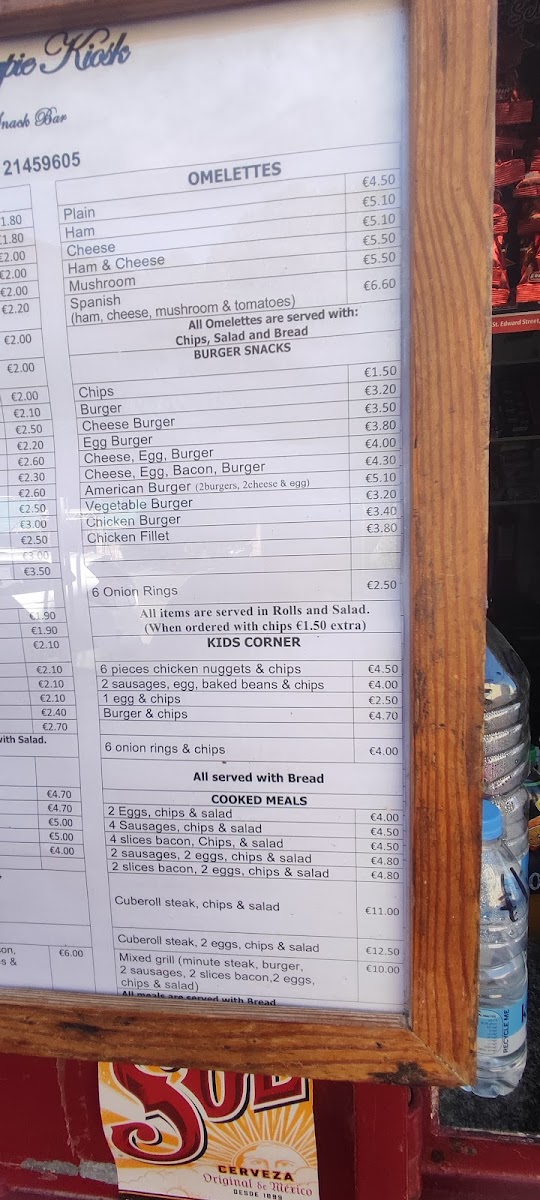 pie Kiosk
Snack Bar
21459605
1.80
€1.80
€2.00
€2.00
€2.00
€2.20
€2.00
€2.00
€2.00
€2.10
€2.50
€2.20
€2.60
€2.30
€2.60
€2.50
€3.00
€2.50
€3.00
€3.50
€1.90
€1.90
€2.10
€2.10
€2.10
€2.10
€2.40
€2.70
with Salad.
€4.70
€4.70
€5.00
€5.00
€4.00
€6.00
OMELETTES
Plain €4.50
Ham €5.10
Cheese €5.10
Ham & Cheese €5.50
Mushroom €5.50
Spanish €6.60
(ham, cheese, mushroom & tomatoes)
All Omelettes are served with:
Chips, Salad and Bread
BURGER SNACKS
Chips €1.50
Burger €3.20
Cheese Burger €3.50
Egg Burger €3.80
Cheese, Egg, Burger €4.00
Cheese, Egg, Bacon, Burger €4.30
American Burger (2burgers, 2cheese & egg) €5.10
Vegetable Burger €3.20
Chicken Burger €3.40
Chicken Fillet €3.80
6 Onion Rings €2.50
All items are served in Rolls and Salad.
(When ordered with chips €1.50 extra)
KIDS CORNER
6 pieces chicken nuggets & chips €4.50
2 sausages, egg, baked beans & chips €4.00
1 egg & chips €2.50
Burger & chips €4.70
6 onion rings & chips €4.00
All served with Bread
COOKED MEALS
2 Eggs, chips & salad €4.00
4 Sausages, chips & salad €4.50
4 slices bacon, Chips, & salad €4.50
2 sausages, 2 eggs, chips & salad €4.80
2 slices bacon, 2 eggs, chips & salad €4.80
Cuberoll steak, chips & salad €11.00
Cuberoll steak, 2 eggs, chips & salad €12.50
Mixed grill (minute steak, burger, €10.00
2 sausages, 2 slices bacon,2 eggs,
chips & salad)
All meals are served with Bread
St. Edward Street,
RECYCLE ME
SOL
CERVEZA
Original de México
DESDE 1899